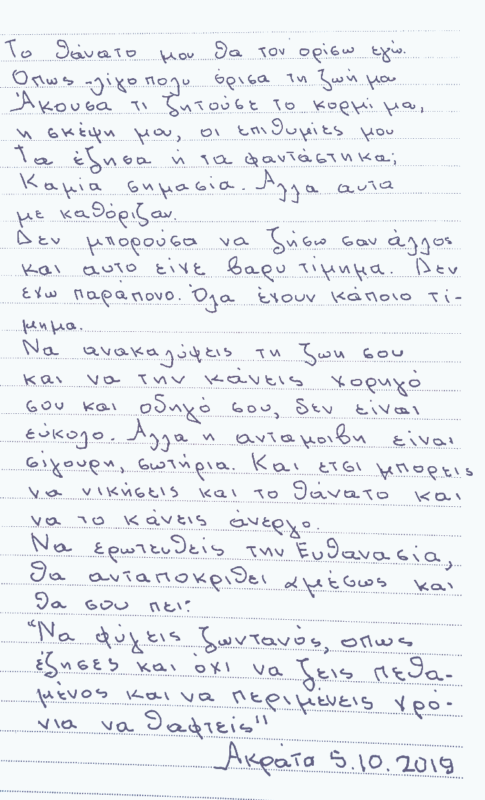 Το θάνατο μου θα τον ορίσω εγώ.
Οπως λίγο πολυ όρισα τη ζωή μα
Άκουσα τι ζητούσε το κορμί μα,
η σκέψη μα, οι επιθυμίες μου
Τα έζησα ή τα φαντάστηκα;
Καμία σημασία. Αλλα αυτα
με καθόριζαν.
Δεν μπορούσα να ζήσω σαν άλλος
και αυτο είχε βαρυ τίμημα. Δεν
εχω παράπονο. Όλα έχουν κάποιο τί-
μημα.
Να ανακαλύψεις τη ζωη σου
και να την κάνεις χορηγό
σου και οδηγό σου, δεν είναι
εύκολο. Αλλα η ανταμοιβη είναι
σίγουρη, σωτήρια. Και ετσι μπορεις
να νικήσεις και το θάνατο και
να το κάνεις άνεργο.
Να ερωτευθείς την Ευθανασία,
θα ανταποκριθει αμέσως και
θα σου πει:
"Να φύγεις ζωντανός, οπως
έζησες και όχι να ζεις πεθα-
μένος και να περιμένεις χρό-
νια να θαφτείς"
Ακράτα 5.10.2019